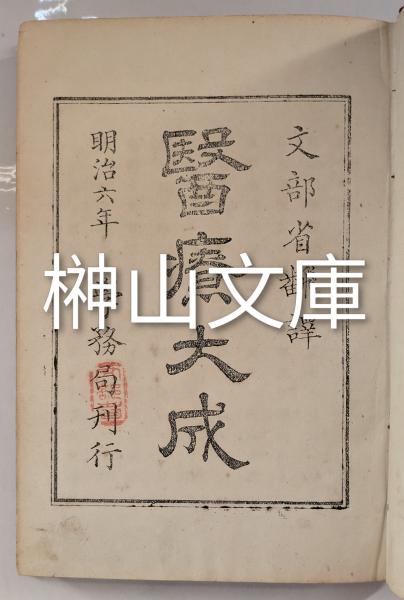 文部省翻譯
醫療大成
明治六年 務局刊行
榊山文庫